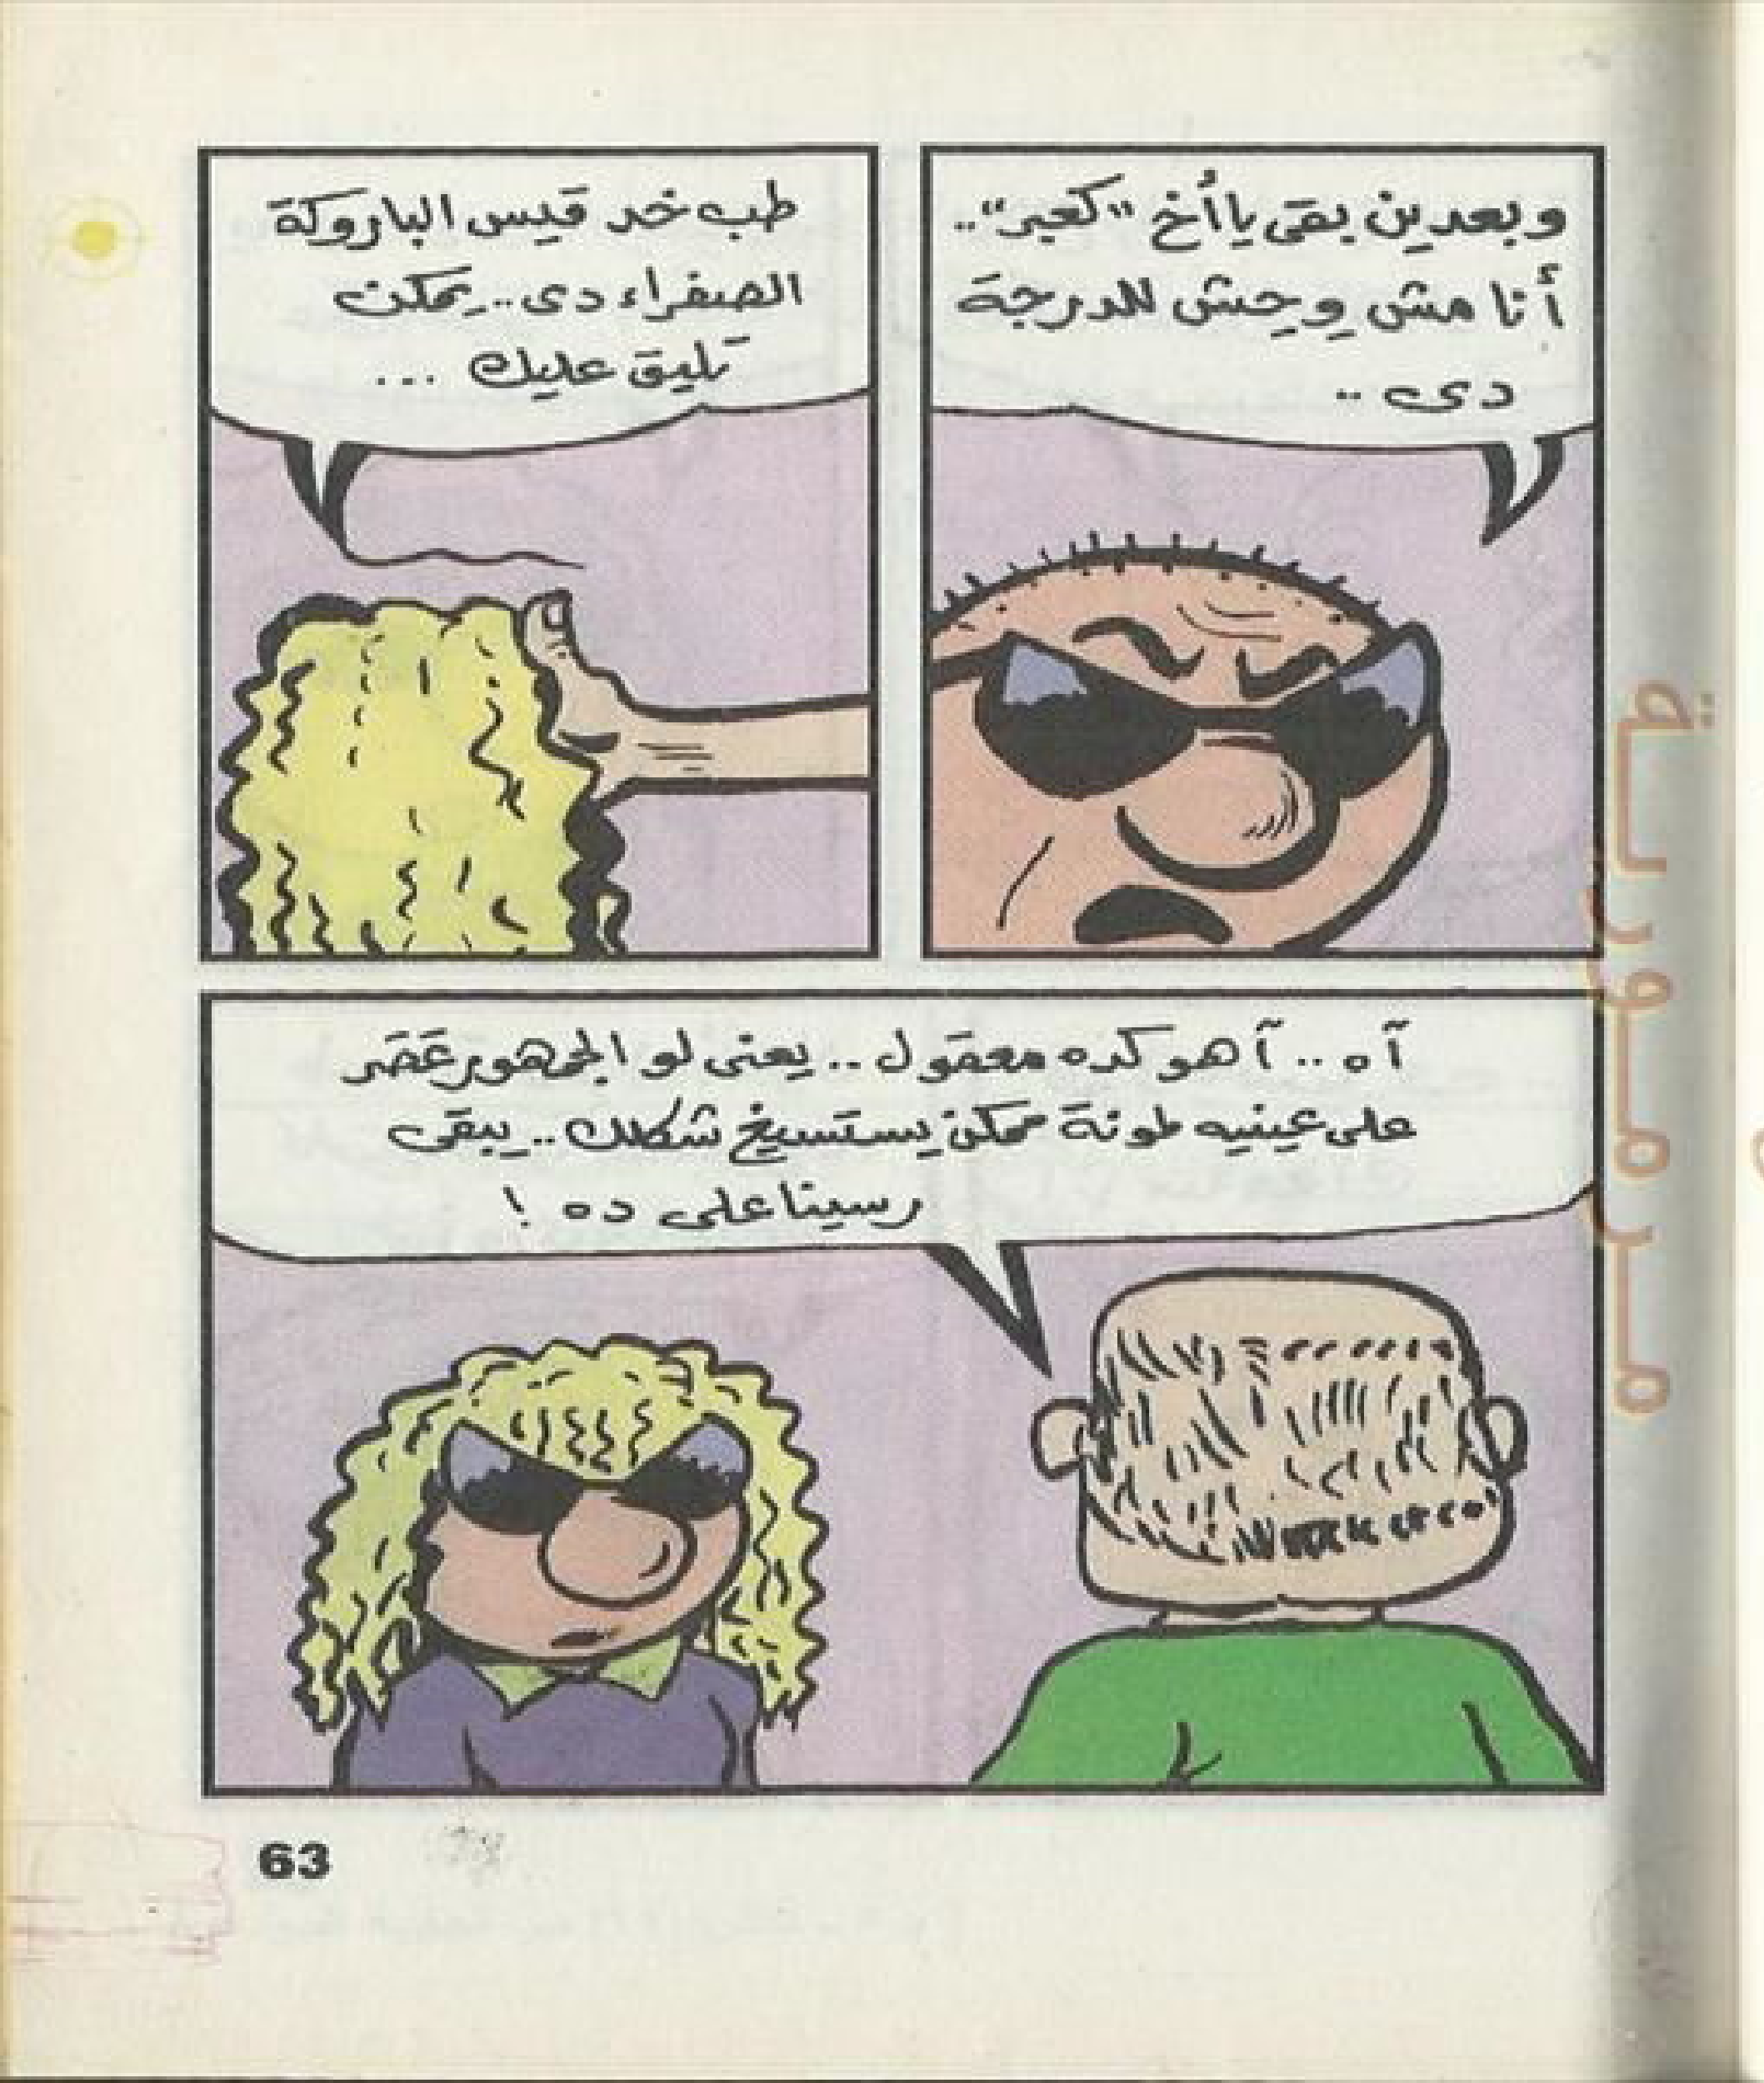 وبعدين بقى يا أخ "كعبر"..
أنا مش وِحِش للدرجة
دى ..
طب خد قيس الباروكة
الصفراء دى.. يمكن
تليق عليك ...
آه .. آهو كده معقول .. يعنى لو الجمهور عَصَر
على عينيه لمونة ممكن يستسيغ شكلك .. يبقى
رسينا على ده !
63
مرمورية